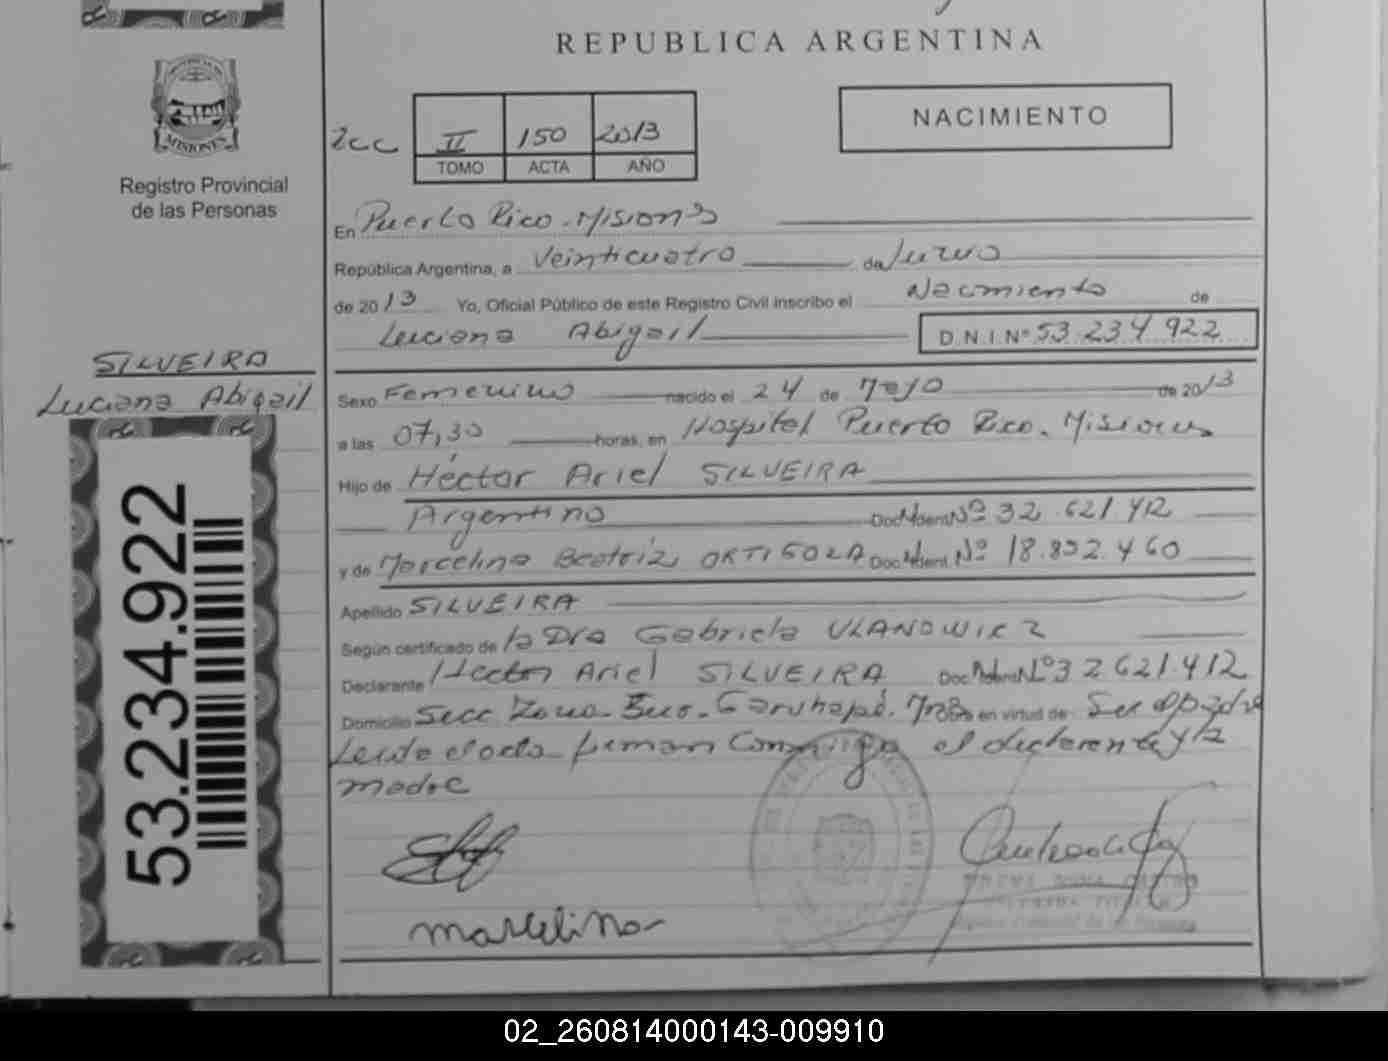 REPUBLICA ARGENTINA
MISIONES
Registro Provincial
de las Personas
2cc II 150 2013
TOMO ACTA AÑO
NACIMIENTO
En Puerto Rico - Misiones
República Argentina, a veinticuatro de Junio
de 2013 Yo, Oficial Público de este Registro Civil inscribo el Nacimiento de
Luciana Abigail D.N.I.Nº 53.234.922
SILVEIRA
Luciana Abigail
Sexo Femenino nacido el 24 de Mayo de 2013
a las 07,30 horas, en Hospital Puerto Rico. Misiones
Hijo de Héctor Ariel SILVEIRA
Argentino Doc. Ident. Nº 32.621.412
y de Marcelina Beatriz ORTIGOZA Doc. Ident. Nº 18.852.460
Apellido SILVEIRA
Según certificado de la Dra Gabriela ULANOWICZ
Declarante Hector Ariel SILVEIRA Doc. Ident. Nº 32.621.412
Domicilio Secc. Zona Garuhapé. en virtud de Ser el padre
Leida el acta firman Conmigo el declarante y la
madre
53.234.922
marcelina
02_260814000143-009910